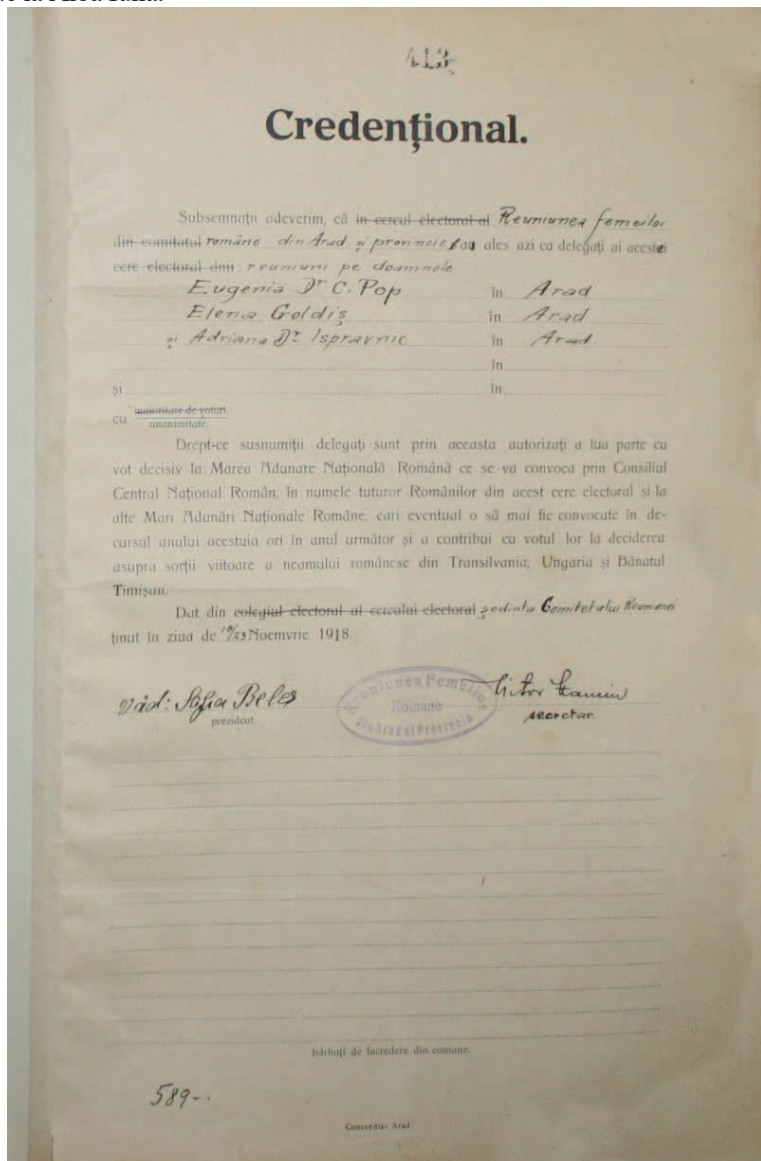 413
Credențional.
Subsemnații adeverim, că în cercul electoral al Reuniunea femeilor
din comitatul române din Arad și provincie au ales azi ca delegați ai acestei
cerc electoral dnii reuniuni pe doamnele
Eugenia Dr C. Pop în Arad
Elena Goldiș în Arad
și Adriana Dr Ispravnic în Arad.
în
și în
cu maioritate de voturi.
ananimitate.
Drept-ce susnumiții delegați sunt prin aceasta autorizați a lua parte cu
vot decisiv la Marea Adunare Națională Română ce se va convoca prin Consiliul
Central Național Român, în numele tuturor Românilor din acest cerc electoral și la
alte Mari Adunări Naționale Române, cari eventual o să mai fie convocate în de-
cursul anului acestuia ori în anul următor și a contribui cu votul lor la deciderea
asupra sorții viitoare a neamului românesc din Transilvania, Ungaria și Bănatul
Timișan.
Dat din colegiul electoral al cercului electoral ședința Comitetului Reuniunei
ținut în ziua de 10/23 Noemvrie 1918.
văd: Sofia Beleș
prezident.
Reuniunea Femeilor
Române
Din Arad și Provincie
secretar.
bărbați de încredere din comune.
589-.
Concordia- Arad